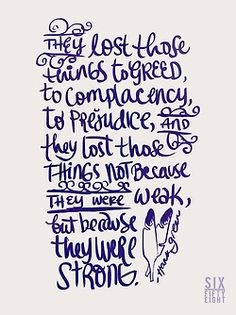 THEY lost those
things to GREED,
to complacency,
to Prejudice, AND
they lost those
THINGS NOT Because
THEY WERE weak,
but because
they were
STRONG.
SIX
FIFTY
EIGHT